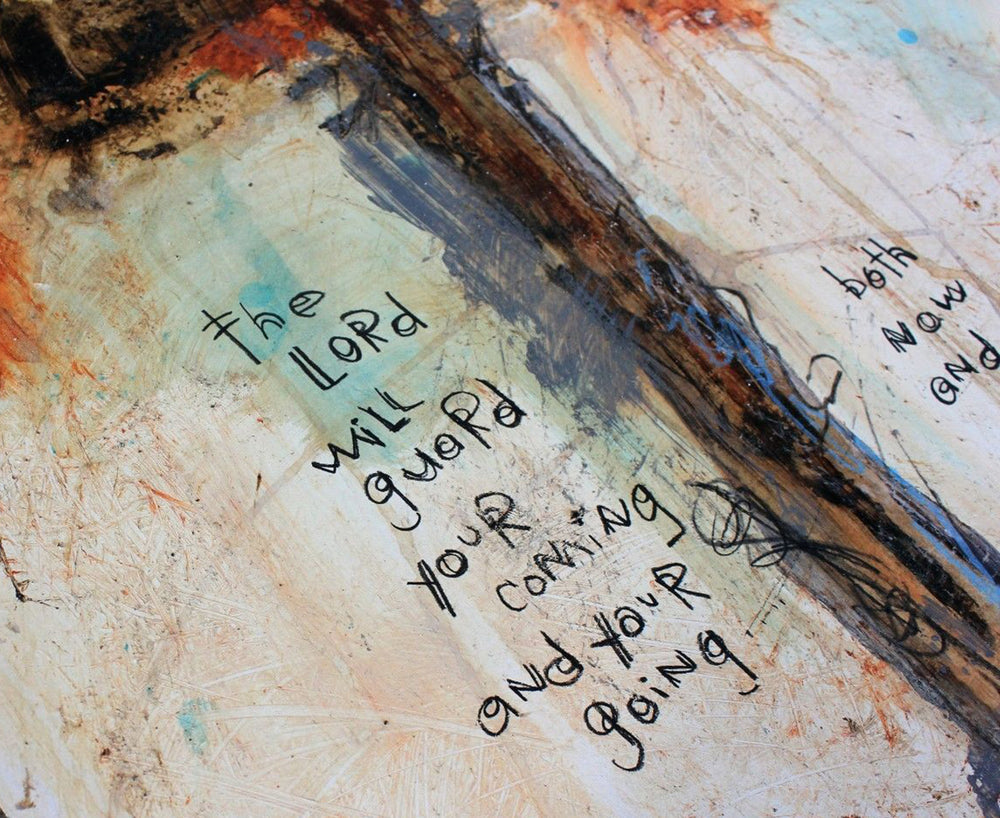 the
LORd
will
guaRd
youR
coMiNg
aNd youR
goiNg
both
Now
aNd